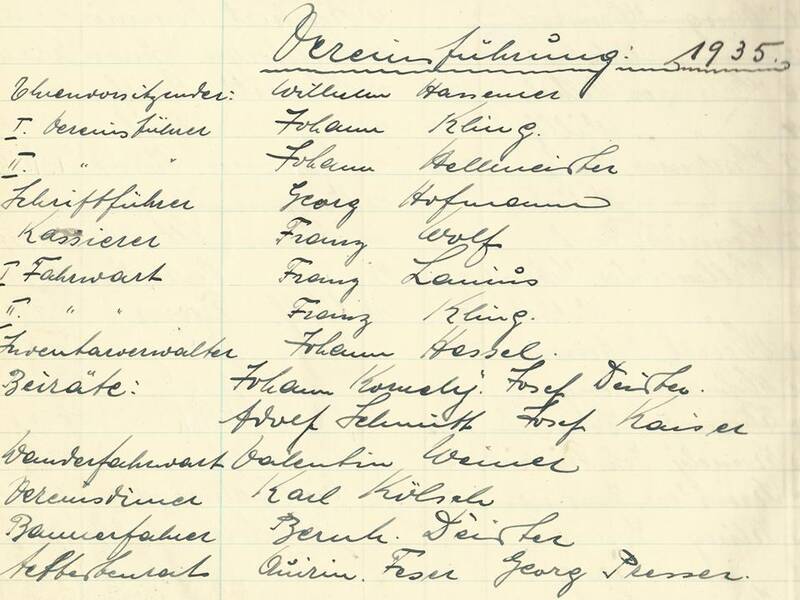 Vereinsführung: 1935.
Ehrenvorsitzender: Wilhelm Hassemer
I. Vereinsführer Johann Kling.
II. " " Johann Hellmeister
Schriftführer Georg Hofmann
Kassierer Franz Wolf
I Fahrwart Franz Lanius
II. " " Franz Kling.
Inventarverwalter Johann Hassel.
Beiräte: Johann Kornely. Josef Deister.
Adolf Schmitt Josef Kaiser
Wanderfahrwart Valentin Weiner
Vereinsdiener Karl Kölsch
Bannerfahrer Bernh. Deister
Ältestenrats Quirin. Feser Georg Presser.